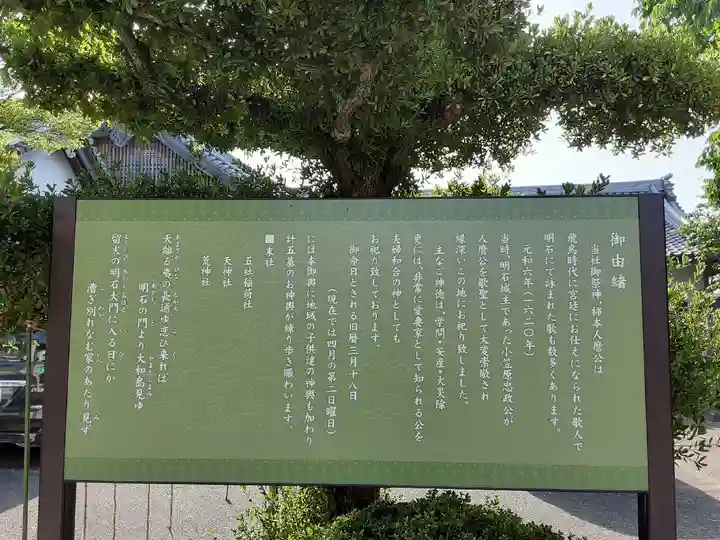 御由緒
当社御祭神、柿本人麿公は
飛鳥時代に宮廷にお仕えになられた歌人で
明石にて詠まれた歌も数多くあります。
元和六年(一六二〇年)
当時、明石城主であった小笠原忠政公が
人麿公を歌聖として大変崇敬され
縁深いこの地にお祀り致しました。
主なご神徳は「学問・安産・火災除
更には、非常に愛妻家として知られる公を
夫婦和合の神としても
お祀り致しております。
御命日とされる旧暦三月十八日
(現在では四月の第二日曜日)
には本御輿に地域の子供達の神輿も加わり
計五基のお神輿が練り歩き賑わいます。
■末社
五社稲荷社
天神社
荒神社
天離る夷の長道ゆ恋ひ来れば
明石の門より大和島見ゆ
留火の明石大門に入る日にか
漕ぎ別れなむ家のあたり見ず